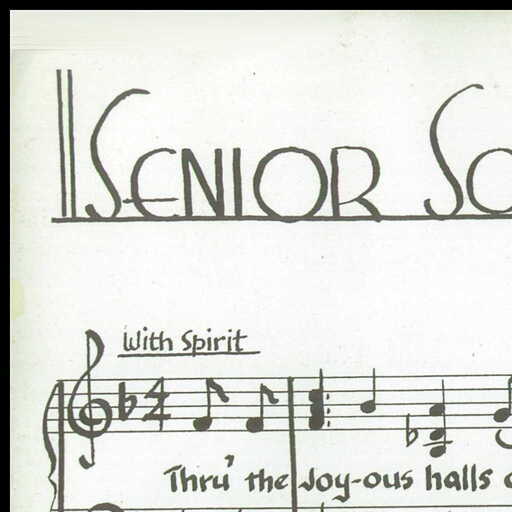 SENIOR SO
With Spirit
4
4
Thru' the Joy-ous halls